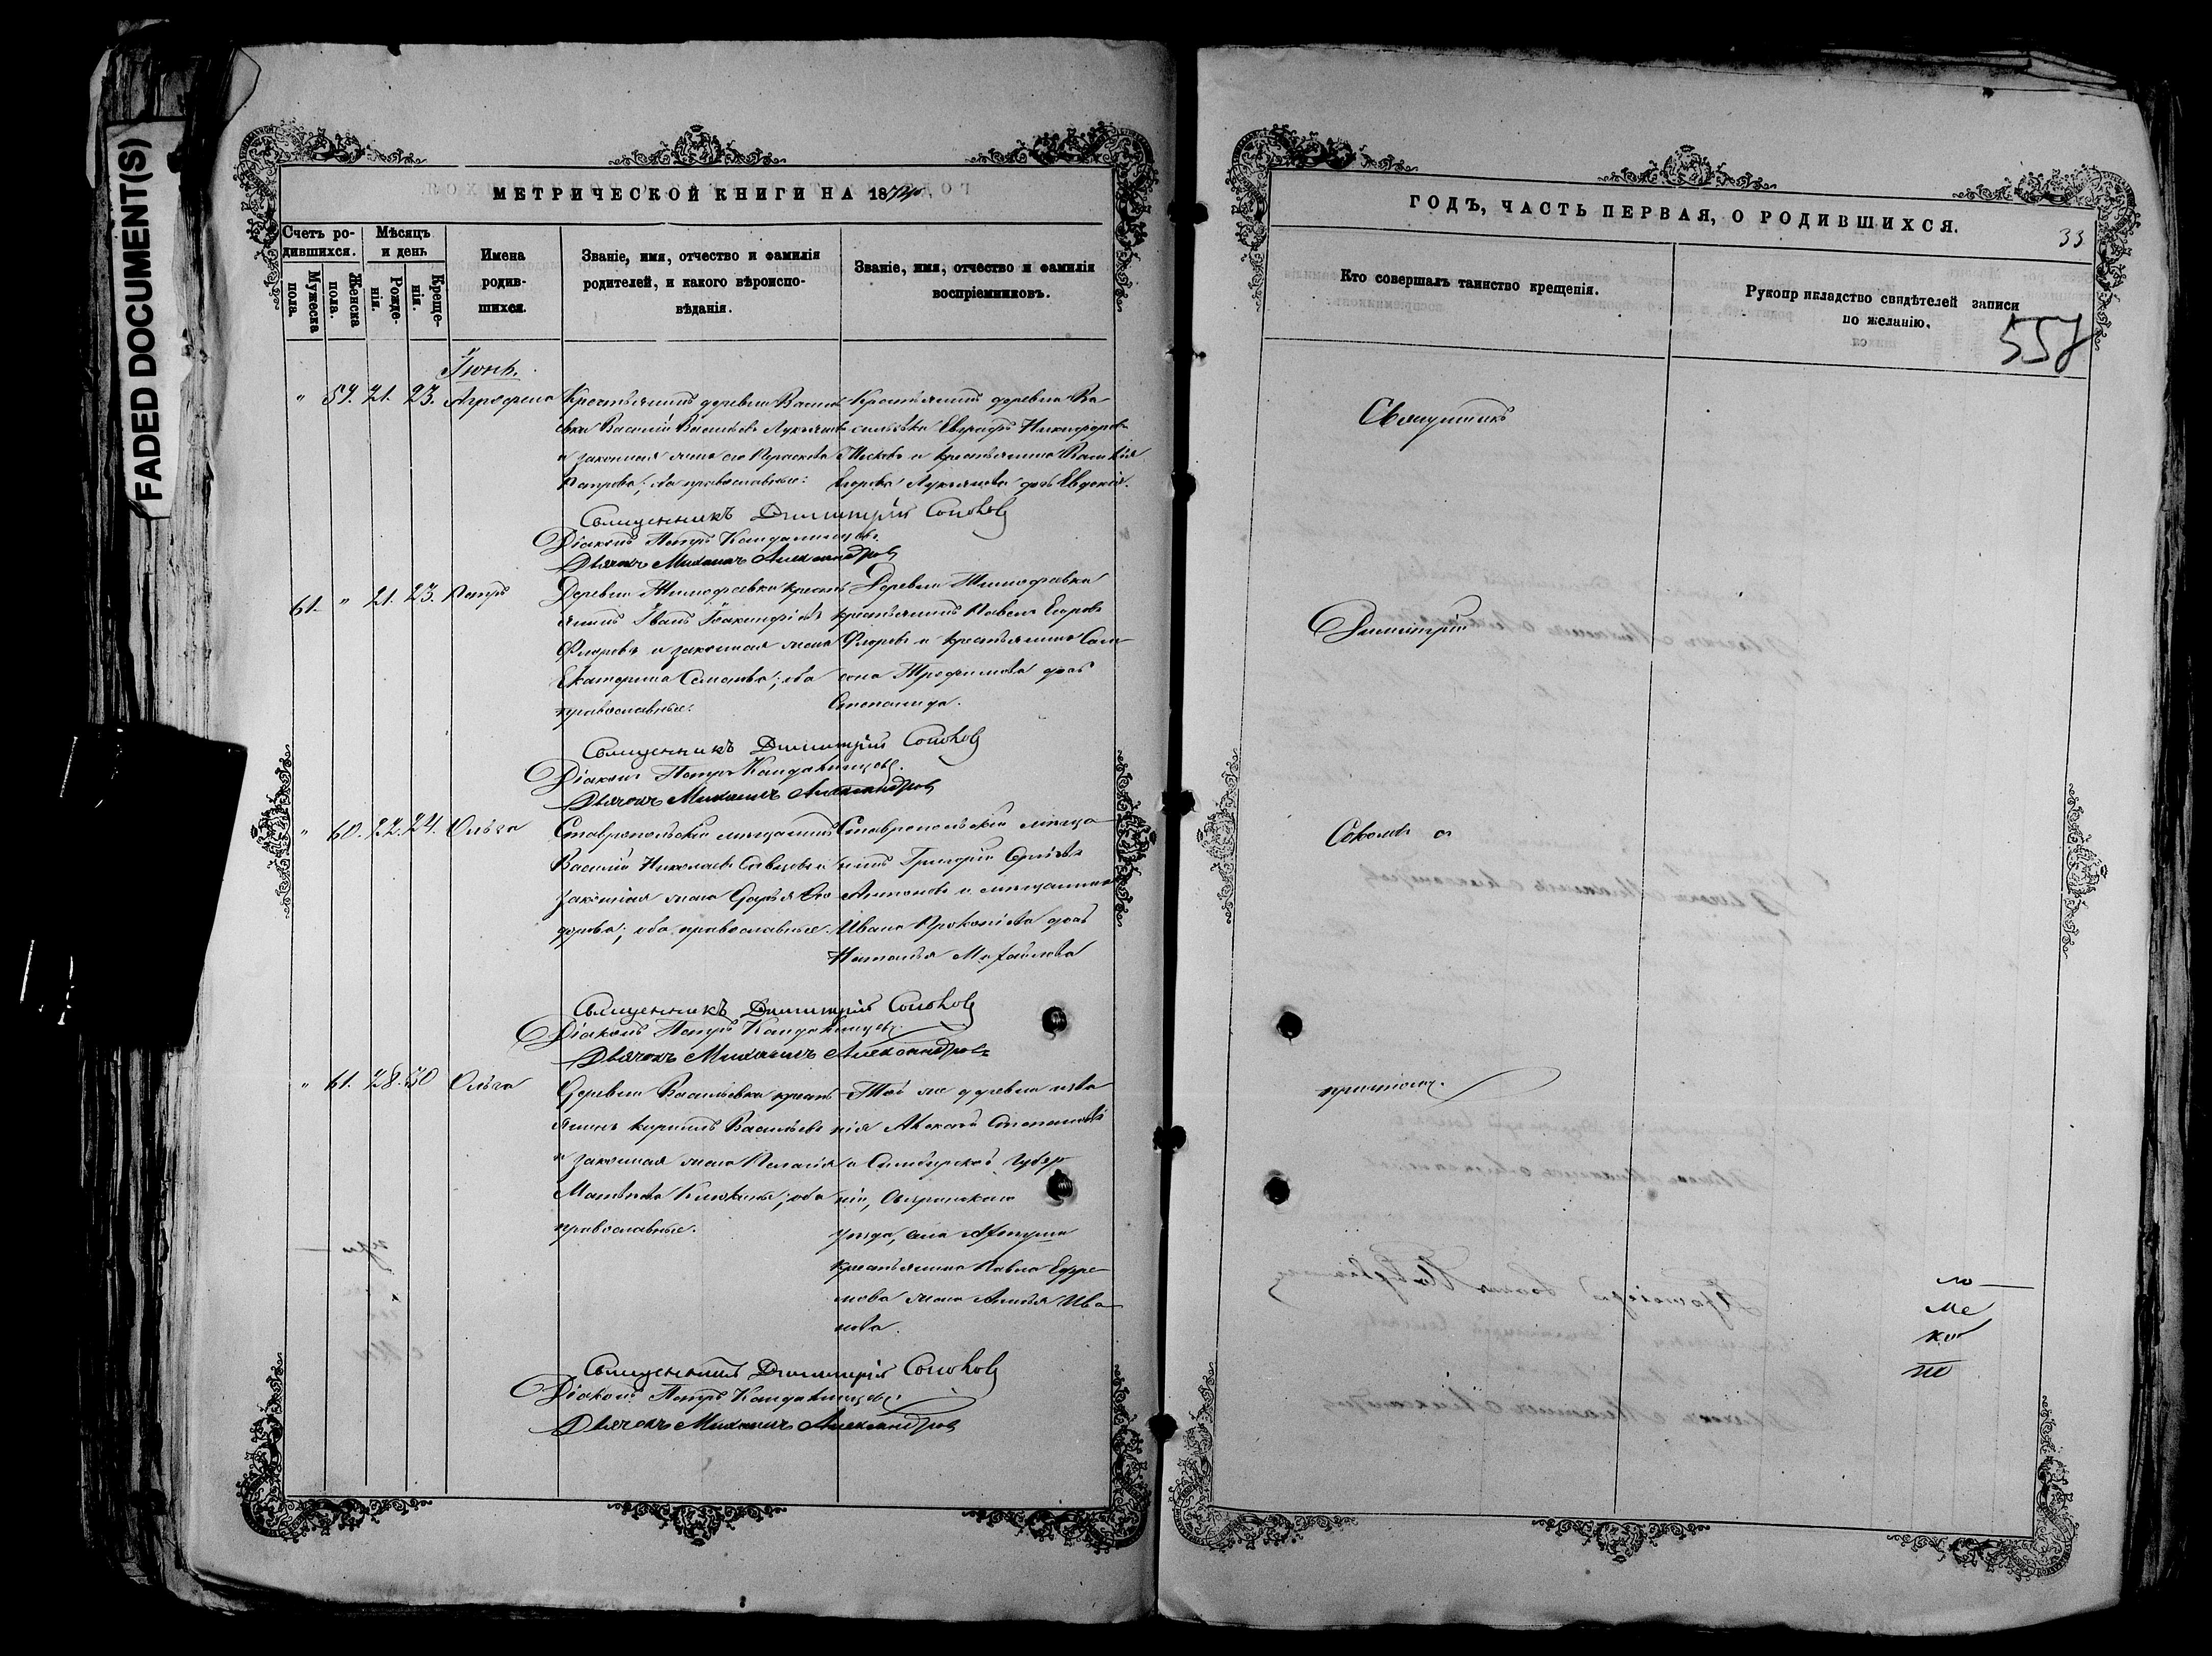 FADED DOCUMENT(S)
МЕТРИЧЕСКОЙ КНИГИ НА 187
Счетъ ро-
дившихся.
Мужеска
пола.
Женска
пола.
Мѣсяцъ
и день
Рожде-
нія.
Креще-
нія.
Имена
родив-
шихся.
Званіе, имя, отчество и фамилія
родителей, и какого вѣроиспо-
вѣданія.
Званіе, имя, отчество и фамилія
воспріемниковъ.
Іюнь.
" 59. 21. 23. Агрофена
Крестьянинъ деревни Василь
евки Василій Васильевъ Лукьяновъ
и законная жена его Параскева
Петрова; оба православные.
Крестьянинъ деревни Ва-
сильевки Евграфъ Никифоровъ
и крестьянина Василія
Егорова Лукьянова дочь Евдокія.
Священникъ Димитрій Соколовъ
Діаконъ Петръ
Дьячекъ Михаилъ Александровъ
61. " 21. 23. Петръ
Деревни Тимофеевки кресть
янинъ Иванъ Іоакинфіевъ
Флоровъ и законная жена
Екатерина Семенова; оба
православные.
Деревни Тимофеевки
крестьянинъ Павелъ Егоровъ
Флоровъ и крестьянина Сам-
сона Трофимова дочь
Степанида.
Священникъ Димитрій Соколовъ
Діаконъ Петръ
Дьячекъ Михаилъ Александровъ
" 60. 22. 24. Ольга
Ставропольскій мѣщанинъ
Василій Николаевъ и
законная жена Дарья Ѳео
дорова; оба православные.
Ставропольскій мѣща-
нинъ Григорій Сергѣевъ
Антоновъ и мѣщанина
Ивана Прокопіева дочь
Наталья Михайлова
Священникъ Димитрій Соколовъ
Діаконъ Петръ
Дьячекъ Михаилъ Александровъ
" 61. 28. 30 Ольга
Деревни Васильевки кресть
янинъ Кириллъ Васильевъ
и законная жена Пелагія
Матвѣева; оба
православные.
Той же деревни
Степановъ
и Симбирской Губер
ніи, Сызранскаго
уѣзда, села
крестьянина Павла Ефре-
мова жена Ива
нова.
Священникъ Димитрій Соколовъ
Діаконъ Петръ
Дьячекъ Михаилъ Александровъ
ГОДЪ, ЧАСТЬ ПЕРВАЯ, О РОДИВШИХСЯ.
33
Кто совершалъ таинство крещенія.
Рукопр икладство свидѣтелей записи
по желанію.
557
Священникъ
Димитрій
Соколовъ съ
причтомъ.
ло
ме
ко